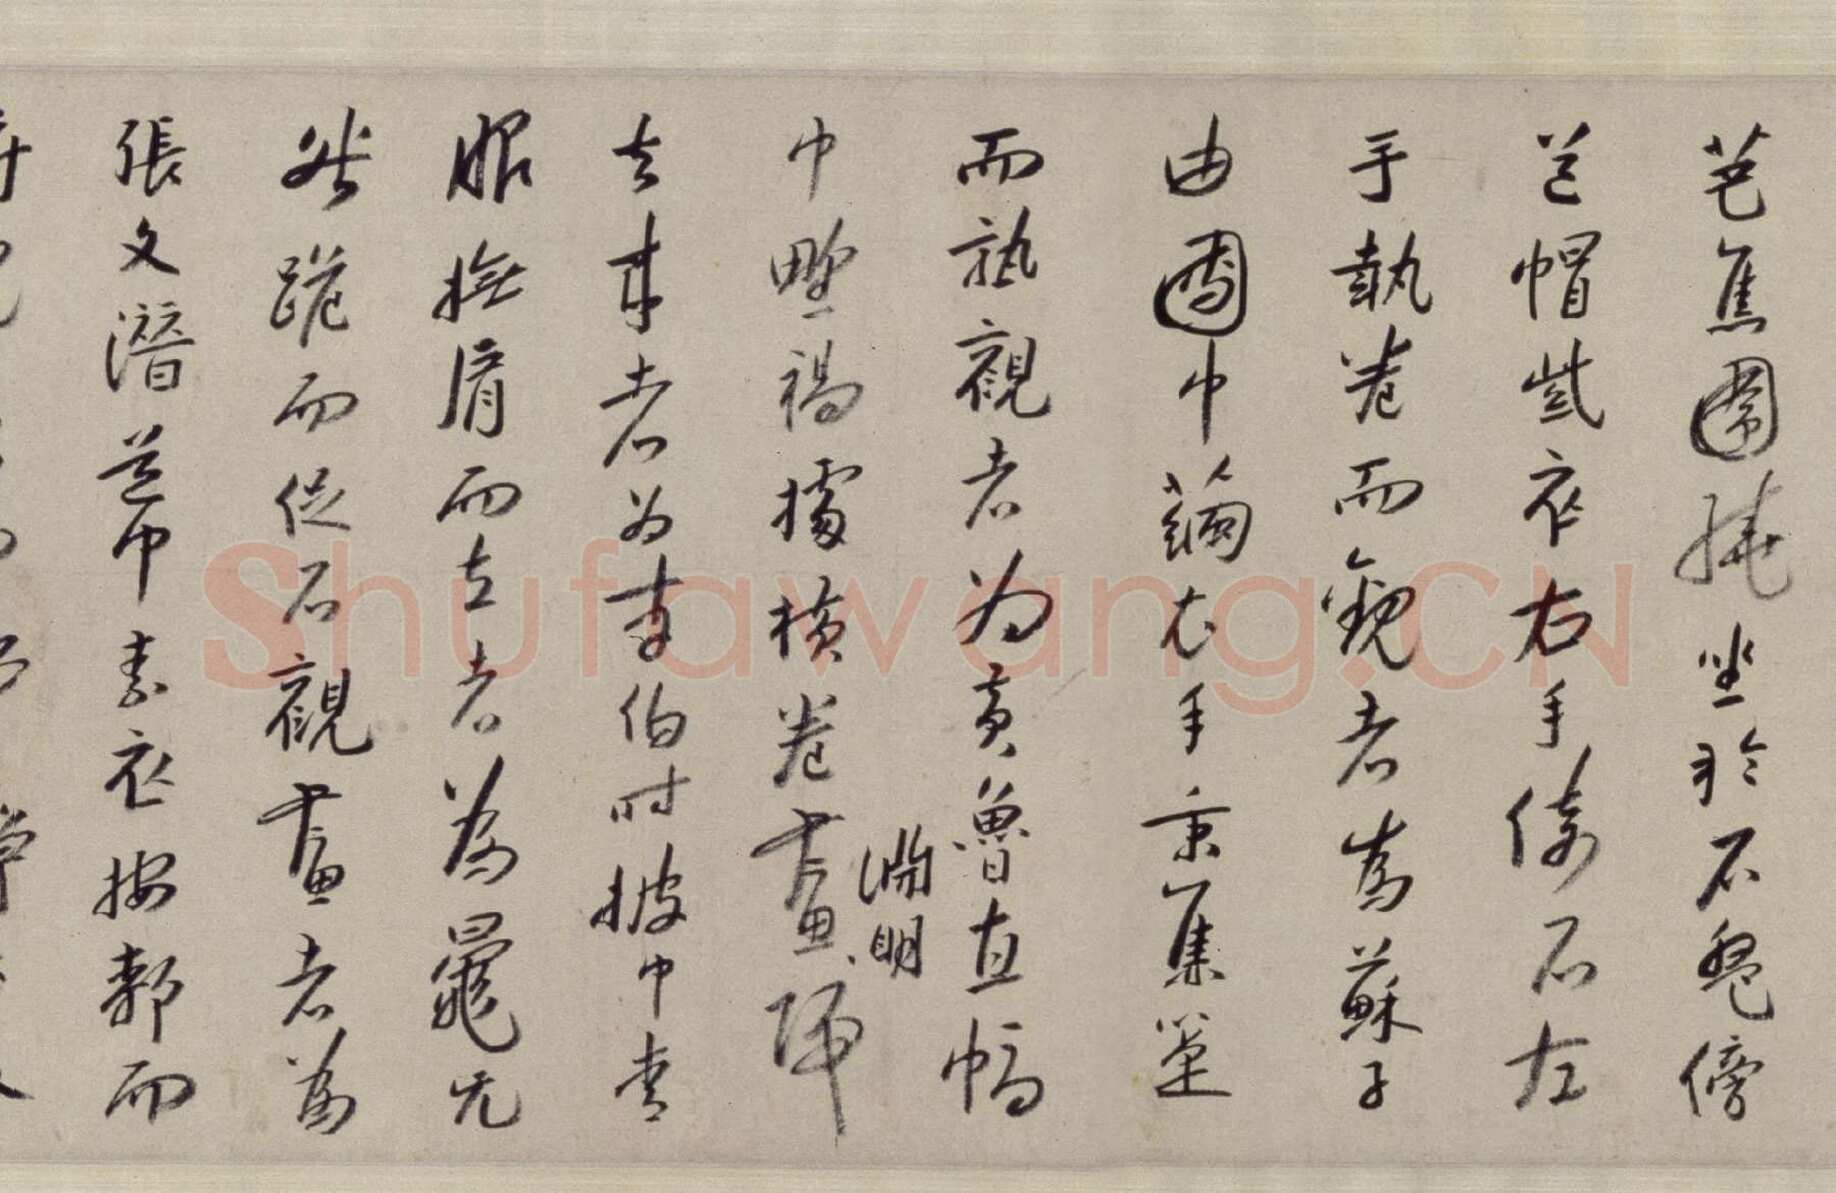 芭蕉圍繞坐於石盤傍
道帽紫衣右手倚石左
手執卷而觀者為蘇子
由團巾繭衣手秉蕉箑
而孰觀者為黃魯直幅
巾野褐據橫卷畫
淵明歸
去來者為李伯時披巾青
服撫肩而立者為鼂无
咎跪而促石觀畫者為
張文潛道巾素衣按郄而
Shufawang.CN